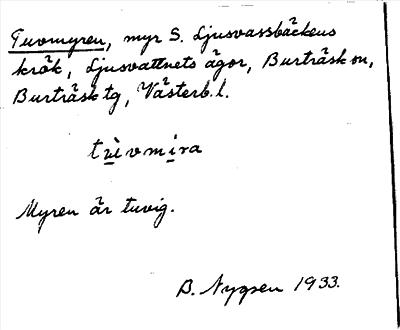 Tuvmyren, myr S. Ljusvassbäckens
krök, Ljusvattnets ägor, Burträsk sn,
Burträsk tg, Västerb. l.
tùvmira
Myren är tuvig.
B. Nygren 1933.